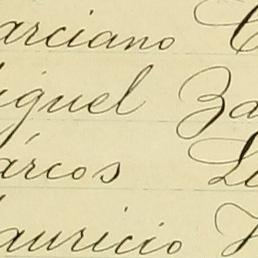 arciano C
iguel Za
árcos L
auricio